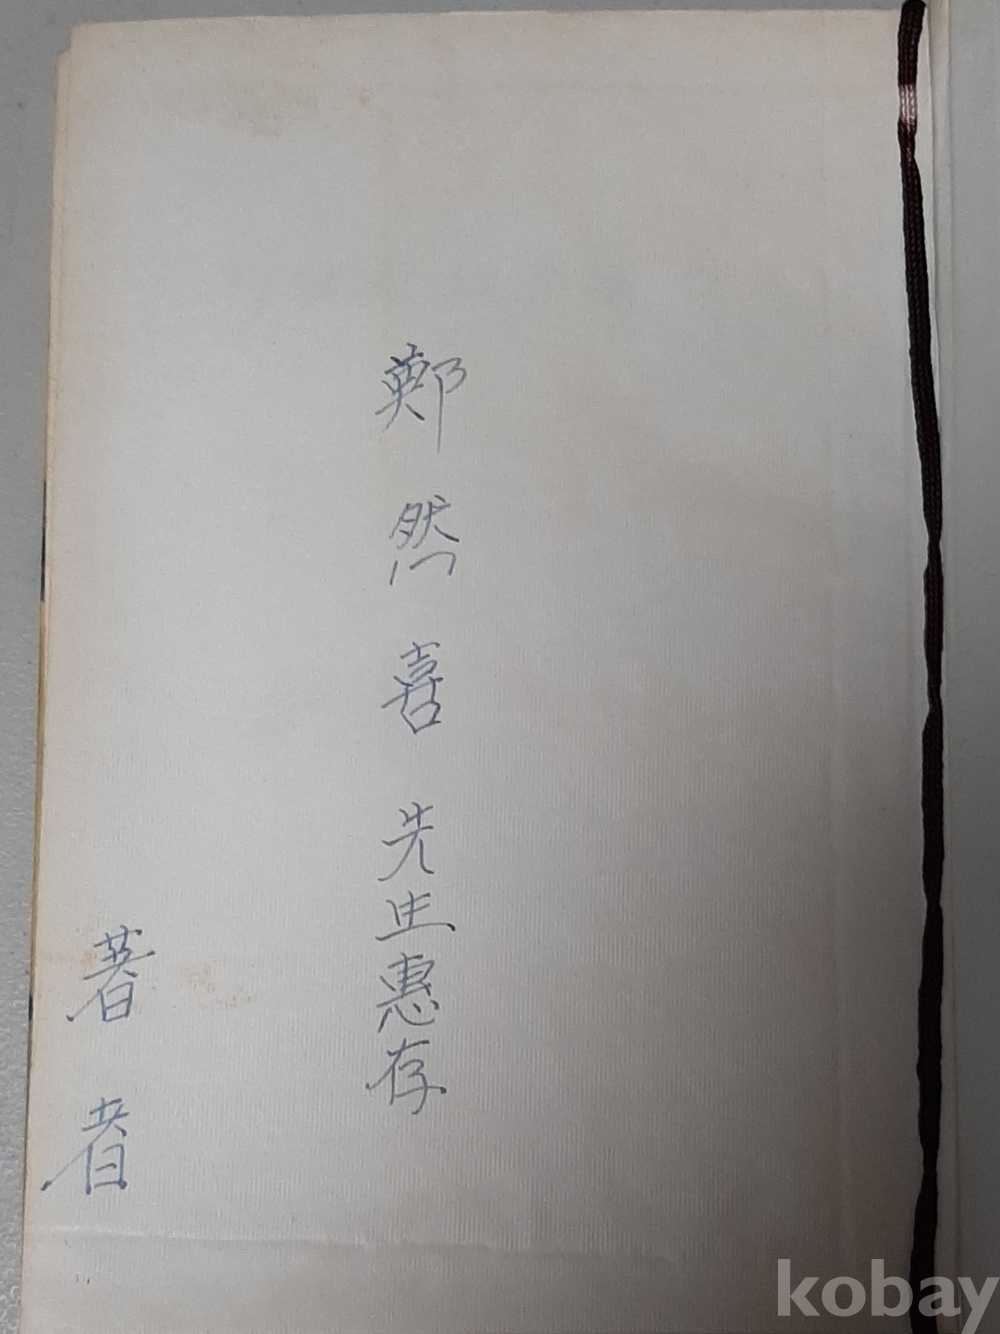 鄭然喜先生惠存
著者
kobay